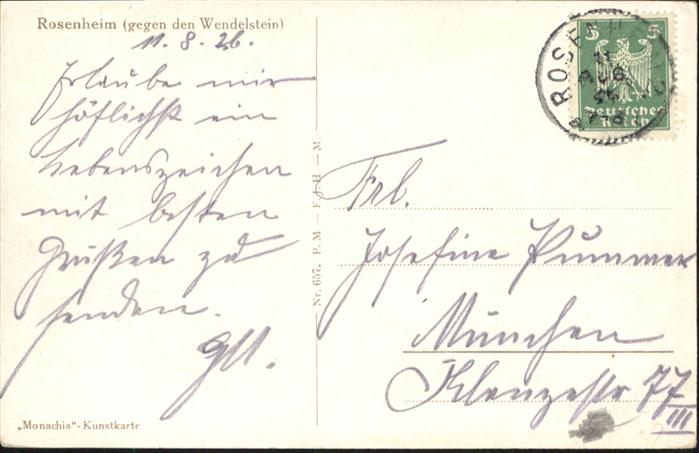 Rosenheim (gegen den Wendelstein)
11.8.26.
Erlaube mir
höflichst ein
Lebenszeichen
mit besten
Grüßen zu
senden.
„Monachia“-Kunstkarte
Nr. 657. P. M — F. J. H — M.
ROSENHEIM
11
AUG
26
5 5
Deutsches
Reich
Frl.
Josefine Pummer
München
Klenzestr 77
III